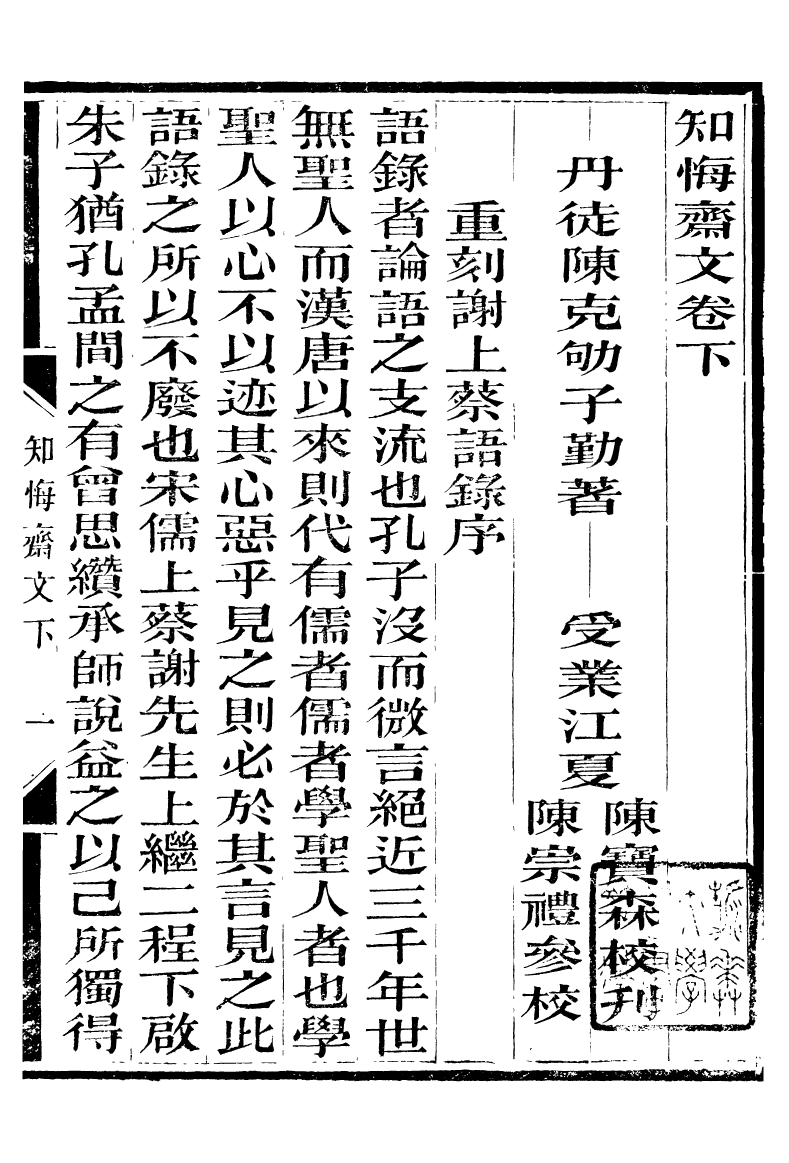 知悔齋文卷下
丹徒陳克劬子勤著
受業江夏
陳寶森校刊
陳崇禮參校
重刻謝上蔡語錄序
語錄者論語之支流也孔子沒而微言絕近三千年世
無聖人而漢唐以來則代有儒者儒者學聖人者也學
聖人以心不以迹其心惡乎見之則必於其言見之此
語錄之所以不廢也宋儒上蔡謝先生上繼二程下啟
朱子猶孔孟間之有曾思纘承師說益之以己所獨得
知悔齋文下
一